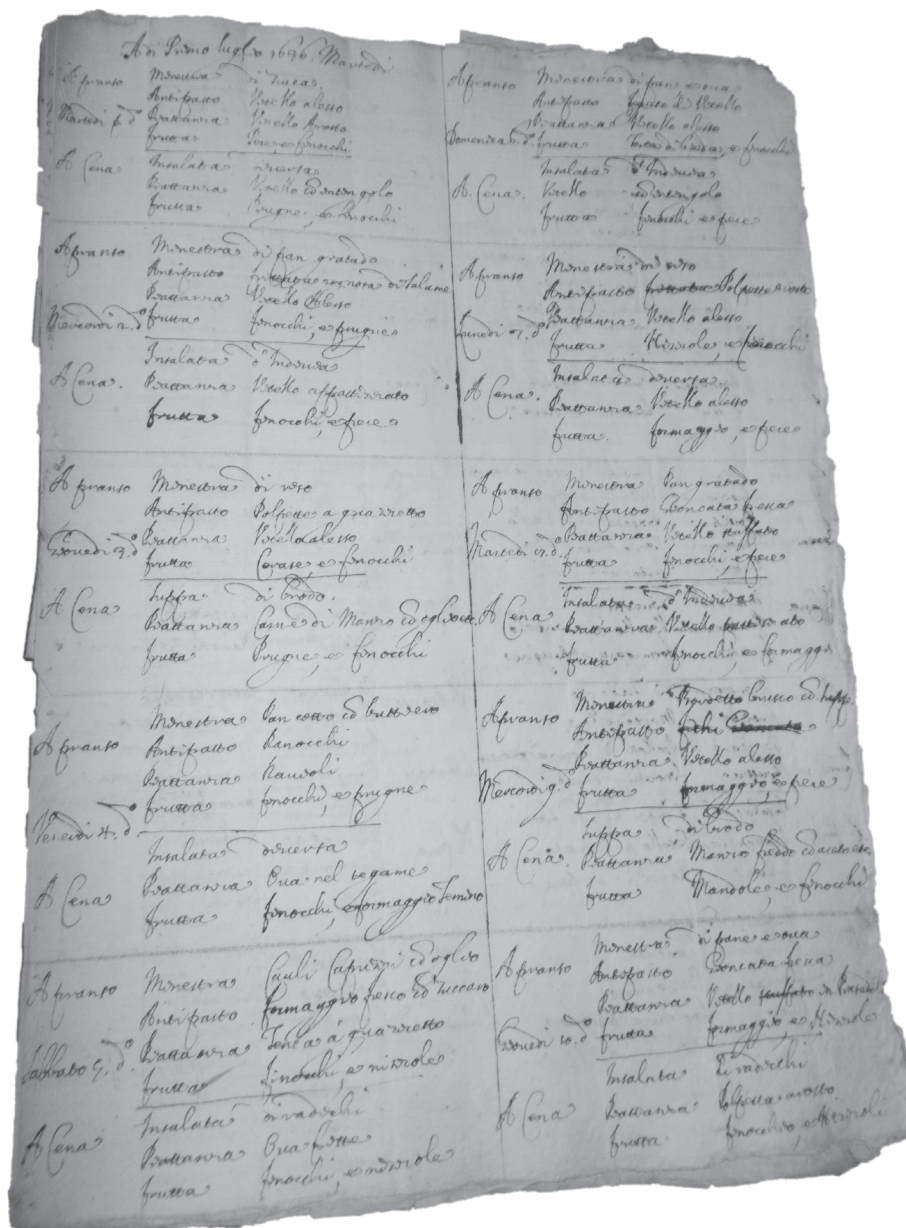 A di Primo luglio 1696. Martedi
A pranso Minestra di zucca
Antipasto Vitello alesso
Martedi p.º d.º Piattanza Vitello Arosto
frutta Pere, e finocchi
A Cena Insalata diversa
Piattanza Vitello cō intingolo
frutta Brugne, e finocchi
A pranso Minestra di pan gratado
Antipasto frittata rognosa di salame
Piattanza Vitello Alesso
Mercordi 2. d.º frutta finocchi, e prugne
Insalata d'Indivia
A Cena. Piattanza Vitello
frutta finocchi, e pere
A pranso Minestra di riso
Antipasto Polpette a guazzetto
Giovedi 3. d.º Piattanza Vitello alesso
frutta Cerase, e finocchi
A Cena Suppa di brodo.
Piattanza Carne di Manzo cō oglio
frutta Prugne, e finocchi
Minestra Pan cotto cō buttiero
A pranso Antipasto Ranocchi
Piattanza Ravioli
frutta finocchi, e prugne
Venerdi 4. d.º
Insalata diversa
A Cena Piattanza Ova nel tegame
frutta finocchi, e formaggio
A pranso Minestra Cauli Capuzzi cō oglio
Antipasto formaggio fresco cō zuccaro
Sabbato 5. d.º Piattanza Tenca à guazzetto
frutta finocchi, e nizzole
Insalata di radicchi
A Cena Piattanza Ova fritte
frutta finocchi, e nizzole
A pranso Minestra di pan, e ova
Antipasto di Vitello
Piattanza Vitello alesso
Domenica 6. d.º frutta e finocchi
Insalata d'Indivia
A Cena. Vitello cō intingolo
frutta finocchi e pere
A pranso Minestra di riso
Antipasto frittata Polpette arosto
Lunedi 7. d.º Piattanza Vitello alesso
frutta Nizzole, e finocchi
Insalata diversa
A Cena. Piattanza Vitello alesso
frutta. formaggio, e pere
A pranso Minestra Pan gratado
Antipasto Gioncata fresca
Martedi d.º Piattanza Vitello stuffato
frutta finocchi, e pere
Insalata d'Indivia
A Cena Piattanza Vitello
frutta finocchi, e formaggio
Minestra Brodetto brusco cō supp
A pranso Antipasto fichi Gioncata
Piattanza Vitello alesso
Mercordi 9. d.º frutta formaggio, e pere
Suppa di brodo
A Cena. Piattanza Manzo freddo cō aceto
frutta Mandole, e finocchi
Minestra di pane e ova
A pranso Antipasto Gioncata fresca
Piattanza Vitello stuffato in
Giovedi 10. d.º frutta formaggio, e Nizzole
Insalata Di radicchi
A Cena Piattanza Polpetta arosto
frutta finocchio, e Nizzoli